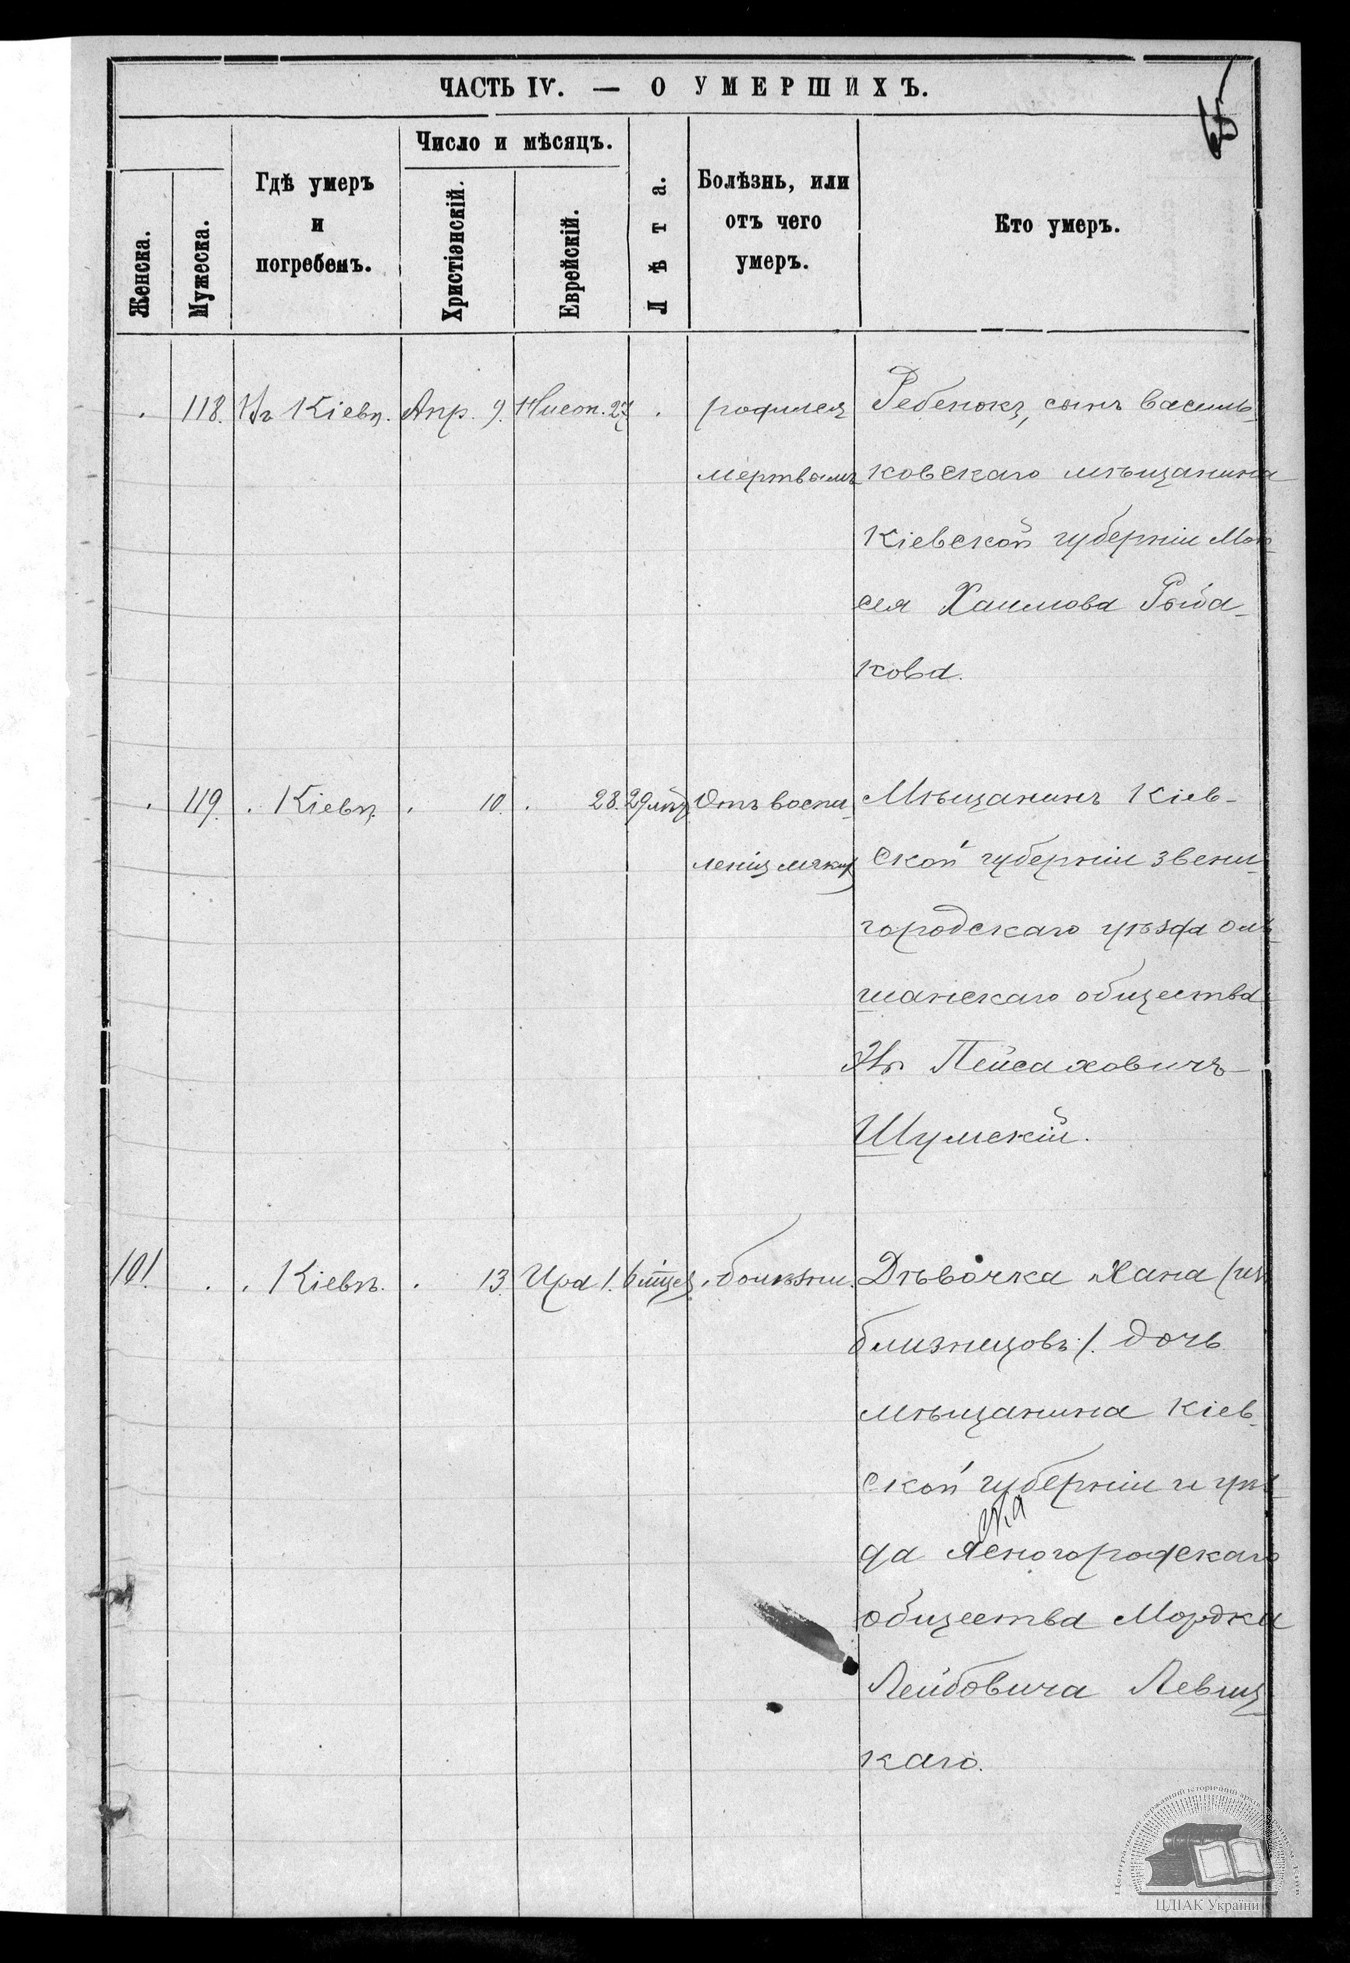 ЧАСТЬ IV. — О УМЕРШИХЪ.
65
Женска.
Мужеска.
Гдѣ умеръ
и
погребенъ.
Число и мѣсяцъ.
Христіянскій.
Еврейскій.
Лѣта.
Болѣзнь, или
отъ чего
умеръ.
Кто умеръ.
118. Въ Кіевѣ. Апр. 9. Нисон. 27 родился Ребенокъ, сынъ василь-
мертвымъ ковскаго мѣщанина
Кіевской губерніи Мов-
сея Хаимова Рыба-
кова.
119. Кіевѣ. 10. 28. 29 лѣтъ Отъ воспа- Мѣщанинъ Кіев-
ленія мягк. ской губерніи звени-
городскаго уѣзда оль-
шанскаго общества
Пейсаховичъ
Шумскій.
101. Кіевѣ. 13 Ира 1. 6 мѣсяц. болѣзни. Дѣвочка Хана /изъ
близнецовъ/. дочь
мѣщанина Кіев-
ской губерніи и уѣз-
да Ясногородскаго
общества Мордки
Лейбовича Левиц-
каго.
ЦДІАК України